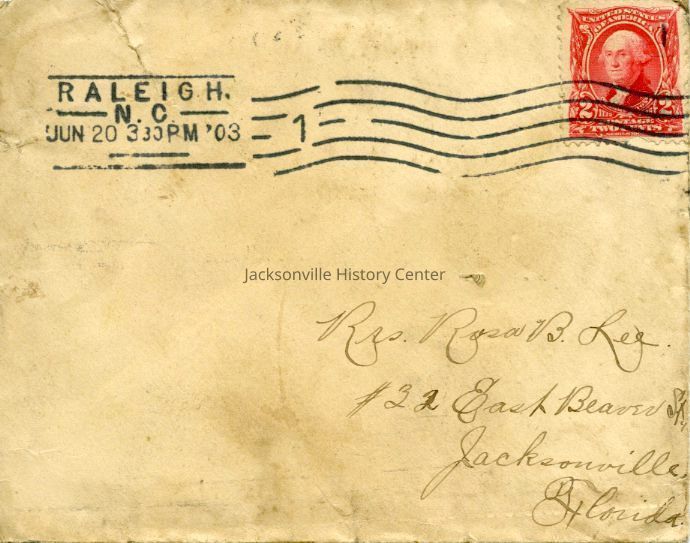 RALEIGH.
N. C.
JUN 20 330 PM '03
1
UNITED STATES
OF AMERICA
2 2
POSTAGE
TWO CENTS
Jacksonville History Center
Mrs. Rosa B. Lee.
#32 East Beaver St,
Jacksonville,
Florida.